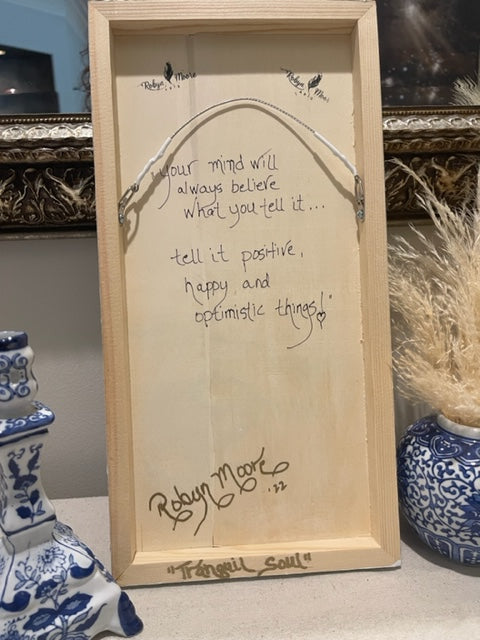 Robyn Moore
Robyn Moore
"your mind will
always believe
what you tell it...
tell it positive,
happy and
optimistic things!"
Robyn Moore
'22
"Tranquil Soul"